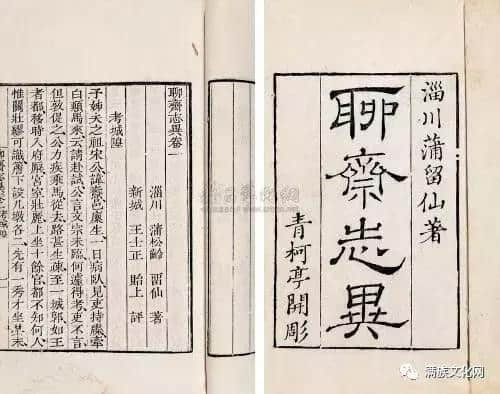 淄川蒲留仙著
聊齋志異
青柯亭開彫
聊齋志異卷一
淄川 蒲松齡 畱仙 著
新城 王士正 貽上 評
考城隍
予姊夫之祖宋公諱燾邑廩生一日病臥見吏持牒牽
白顛馬來云請赴試公言文宗未臨何遽得考吏不言
但敦促之公力疾乘馬從去路甚生疎至一城郭如王
者都移時入府廨宮室壯麗上坐十餘官都不知何人
惟關壯繆可識簷下設几墩各二先有一秀才坐其末
满族文化网